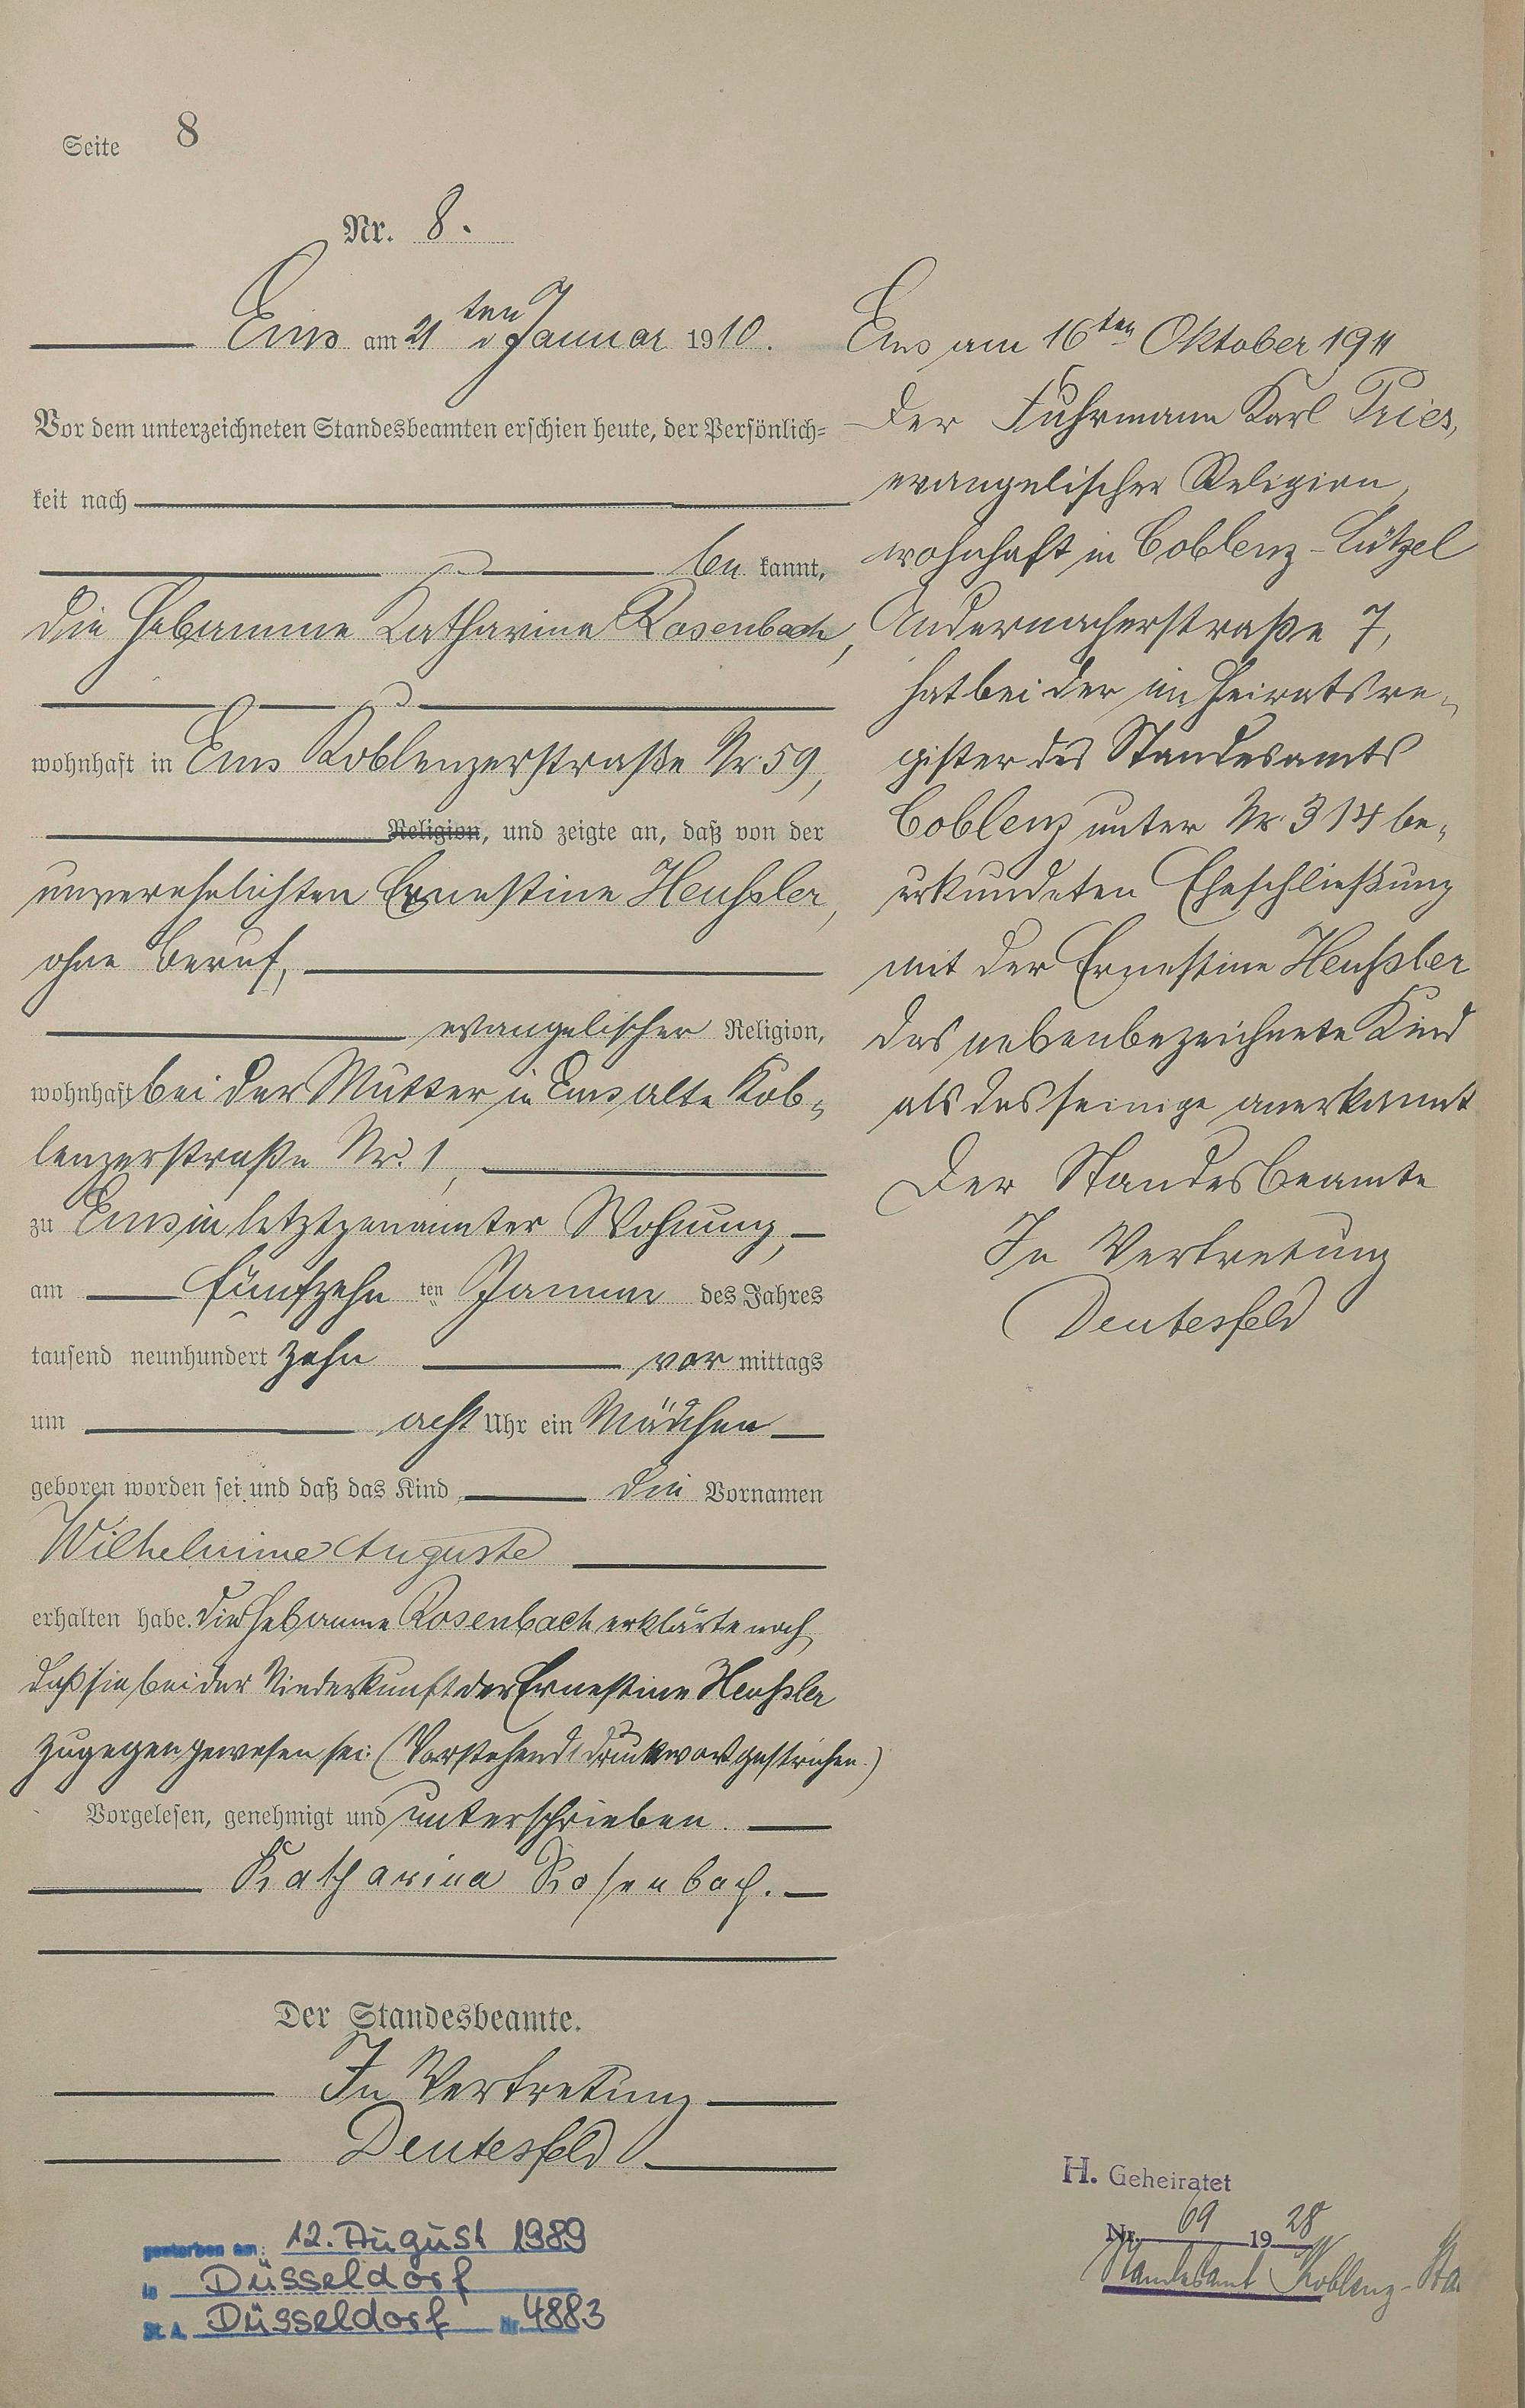 Seite 8
Nr. 8.
Ems am 21ten Januar 1910.
Vor dem unterzeichneten Standesbeamten erschien heute, der Persönlich=
keit nach
be kannt,
die Hebamme Katharina Rosenbach,
wohnhaft in Ems Koblenzerstraße Nr. 59,
Religion, und zeigte an, daß von der
unverehelichten Ernestine Heußler,
ohne Beruf,
evangelischer Religion,
wohnhaft bei der Mutter in Ems alte Kob=
lenzerstraße Nr. 1,
zu Ems in letztgenannter Wohnung,
am fünfzehn ten Januar des Jahres
tausend neunhundert zehn vor mittags
um acht Uhr ein Mädchen
geboren worden sei und daß das Kind die Vornamen
Wilhelmine Auguste
erhalten habe. Die Hebamme Rosenbach erklärte noch
daß sie bei der Niederkunft der Ernestine Heußler
zugegen gewesen sei. (Vorstehend 1 Druckwort gestrichen.)
Vorgelesen, genehmigt und unterschrieben.
Katharina Rosenbach.
Der Standesbeamte.
In Vertretung
Deutesfeld
gestorben am: 12. August 1989
in Düsseldorf
St. A. Düsseldorf Nr. 4883
Ems am 16ten Oktober 1911
Der Fuhrmann Karl Pries,
evangelischer Religion,
wohnhaft in Coblenz-Lützel
Andernacherstraße 7,
hat bei der im Heiratsre=
gister des Standesamts
Coblenz unter Nr. 314 be=
urkundeten Eheschließung
mit der Ernestine Heußler
das nebenbezeichnete Kind
als das seinige anerkannt
Der Standesbeamte
In Vertretung
Deutesfeld
H. Geheiratet
Nr. 69 1928
Standesamt Koblenz-